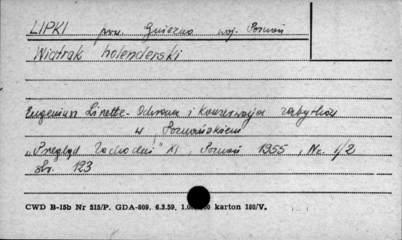 LIPKI pow. Gniezno woj. Poznań
Wiatrak holenderski
Eugeniusz Linette - Ochrona i konserwacja zabytków
w Poznańskiem
"Przegląd Zachodni" XI, Poznań 1955, Nr. 1/2
str. 123
CWD B-15b Nr 515/P. GDA-809. 6.3.59. karton 180/V.